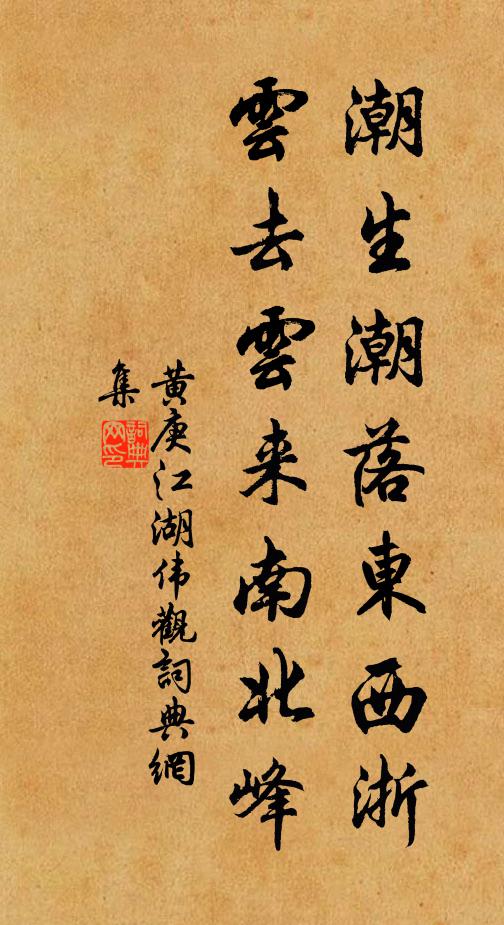 潮生潮落東西浙
雲去雲来南北峰
黄庚江湖伟觀詞典網
集
詞典网印